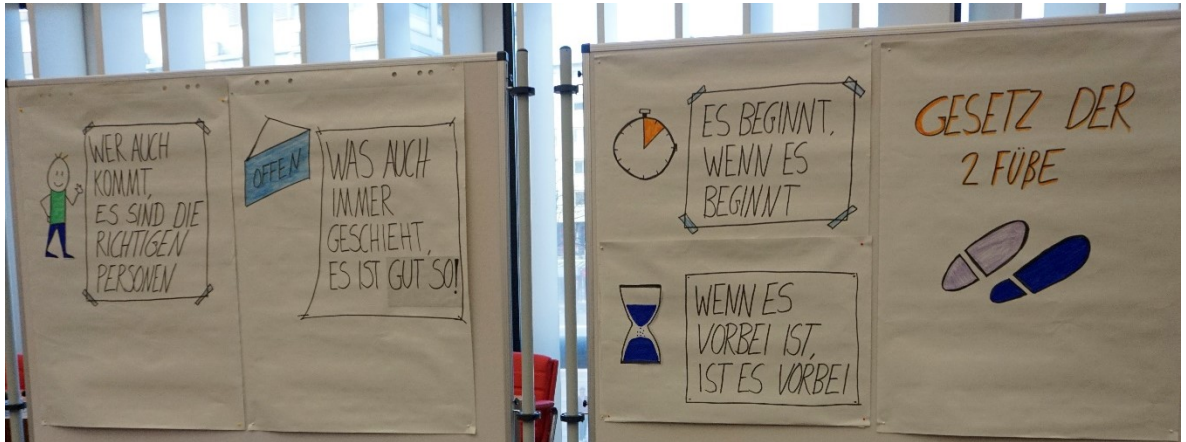 WER AUCH
KOMMT,
ES SIND DIE
RICHTIGEN
PERSONEN
OFFEN
WAS AUCH
IMMER
GESCHIEHT,
ES IST GUT SO!
ES BEGINNT,
WENN ES
BEGINNT
WENN ES
VORBEI IST,
IST ES VORBEI
GESETZ DER
2 FÜßE